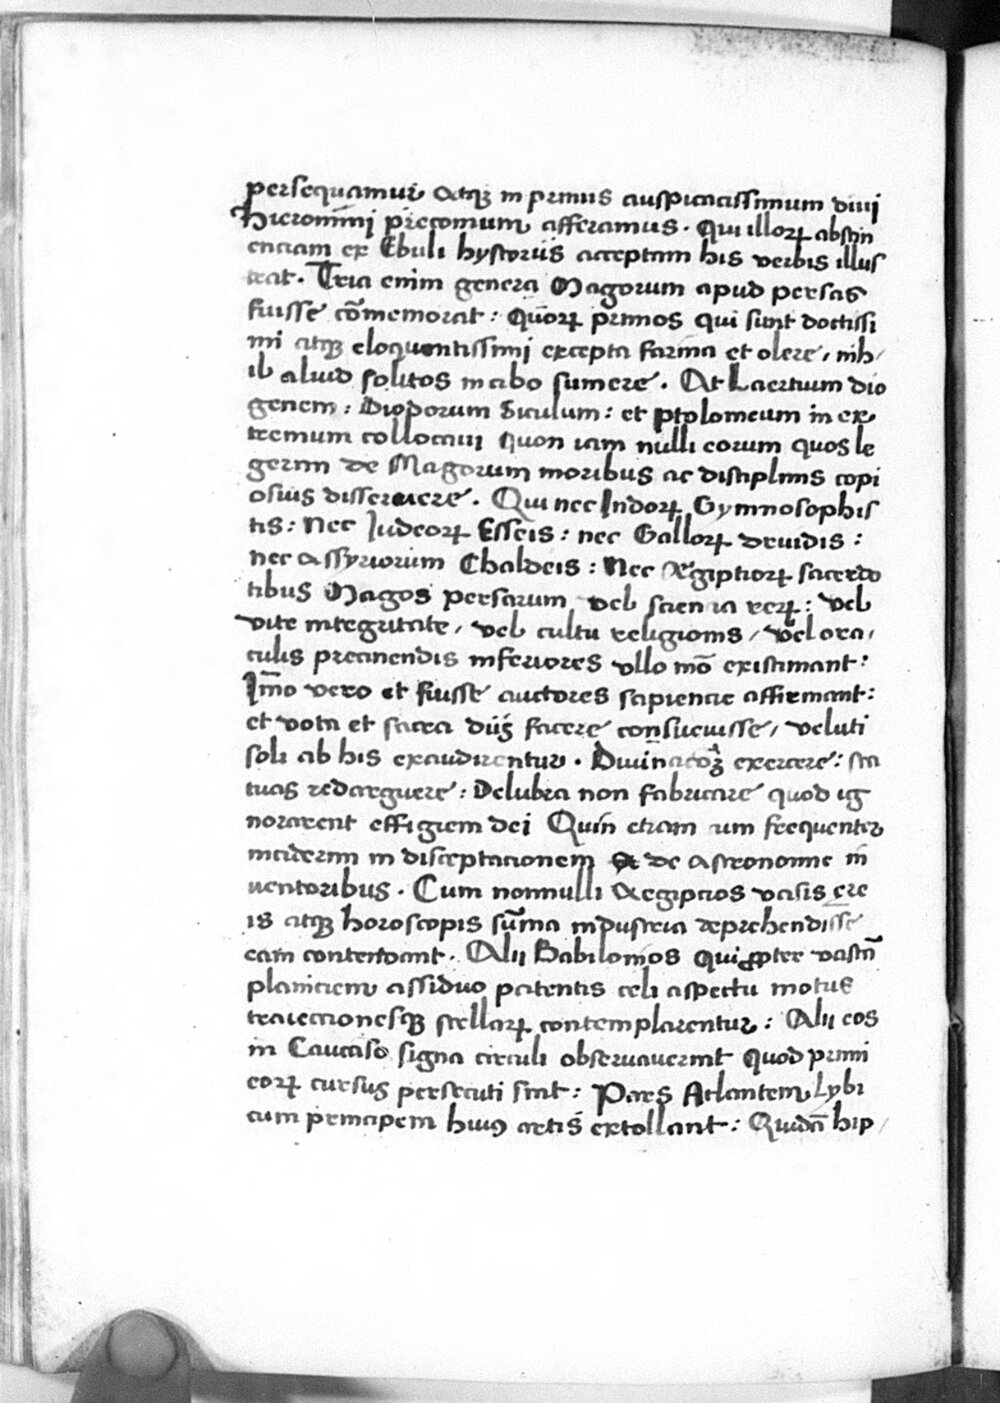 persequamur Atqꝫ in primis auspicatissimum diui
Hieronimi preconium afferamus. Qui illorꝝ abstin
entiam ex Ebuli hystoriis acceptam his verbis illus
trat. Tria enim genera Magorum apud persas
fuisse cōmemorat: Quorꝝ primos qui sunt doctissi
mi atqꝫ eloquentissimi excepta farina et olere, nih/
il aliud solitos in cibo sumere. At Laertium dio
genem: Diodorum Siculum: et ptolomeum in ex
tremum collocaui Quon iam nulli eorum quos le
gerim de Magorum moribus ac disciplinis copi
osius disseruere. Qui nec Indorꝝ Gymnosophis
tis: Nec Iudeorꝝ Esseis: nec Gallorꝝ druidis:
nec assyriorum Chaldeis: Nec ægiptiorꝝ sacerdo
tibus Magos persarum vel scientia rerꝝ: vel
vite integritate, vel cultu religionis, vel ora/
culis precinendis inferiores vllo mō existimant:
Īmo vero et fuisse auctores sapiencie affirmant:
et vota et sacra diis facere consueuisse, veluti
soli ab his exaudirentur. Diuinatōꝫ exercere: sta
tuas redarguere: Delubra non fabricare quod ig
norarent effigiem dei Quin etiam cum frequenter
inciderim in disceptacionem de astronomie in
uentoribus. Cum nonnulli Aegiptios vasis ere
is atqꝫ horoscopis sūma industria deprehendisse
eam contendant. Alii Babilonios qui ꝓpter vastā
planiciem assiduo patentis celi aspectu motus
traiectionesqꝫ stellarꝝ contemplarentur: Alii eos
in Caucaso signa circuli obseruauerint quod primi
eorꝝ cursus persecuti sint: Pars Atlantem Lybi
cum principem huiꝰ artis extollant: Quidā hip/